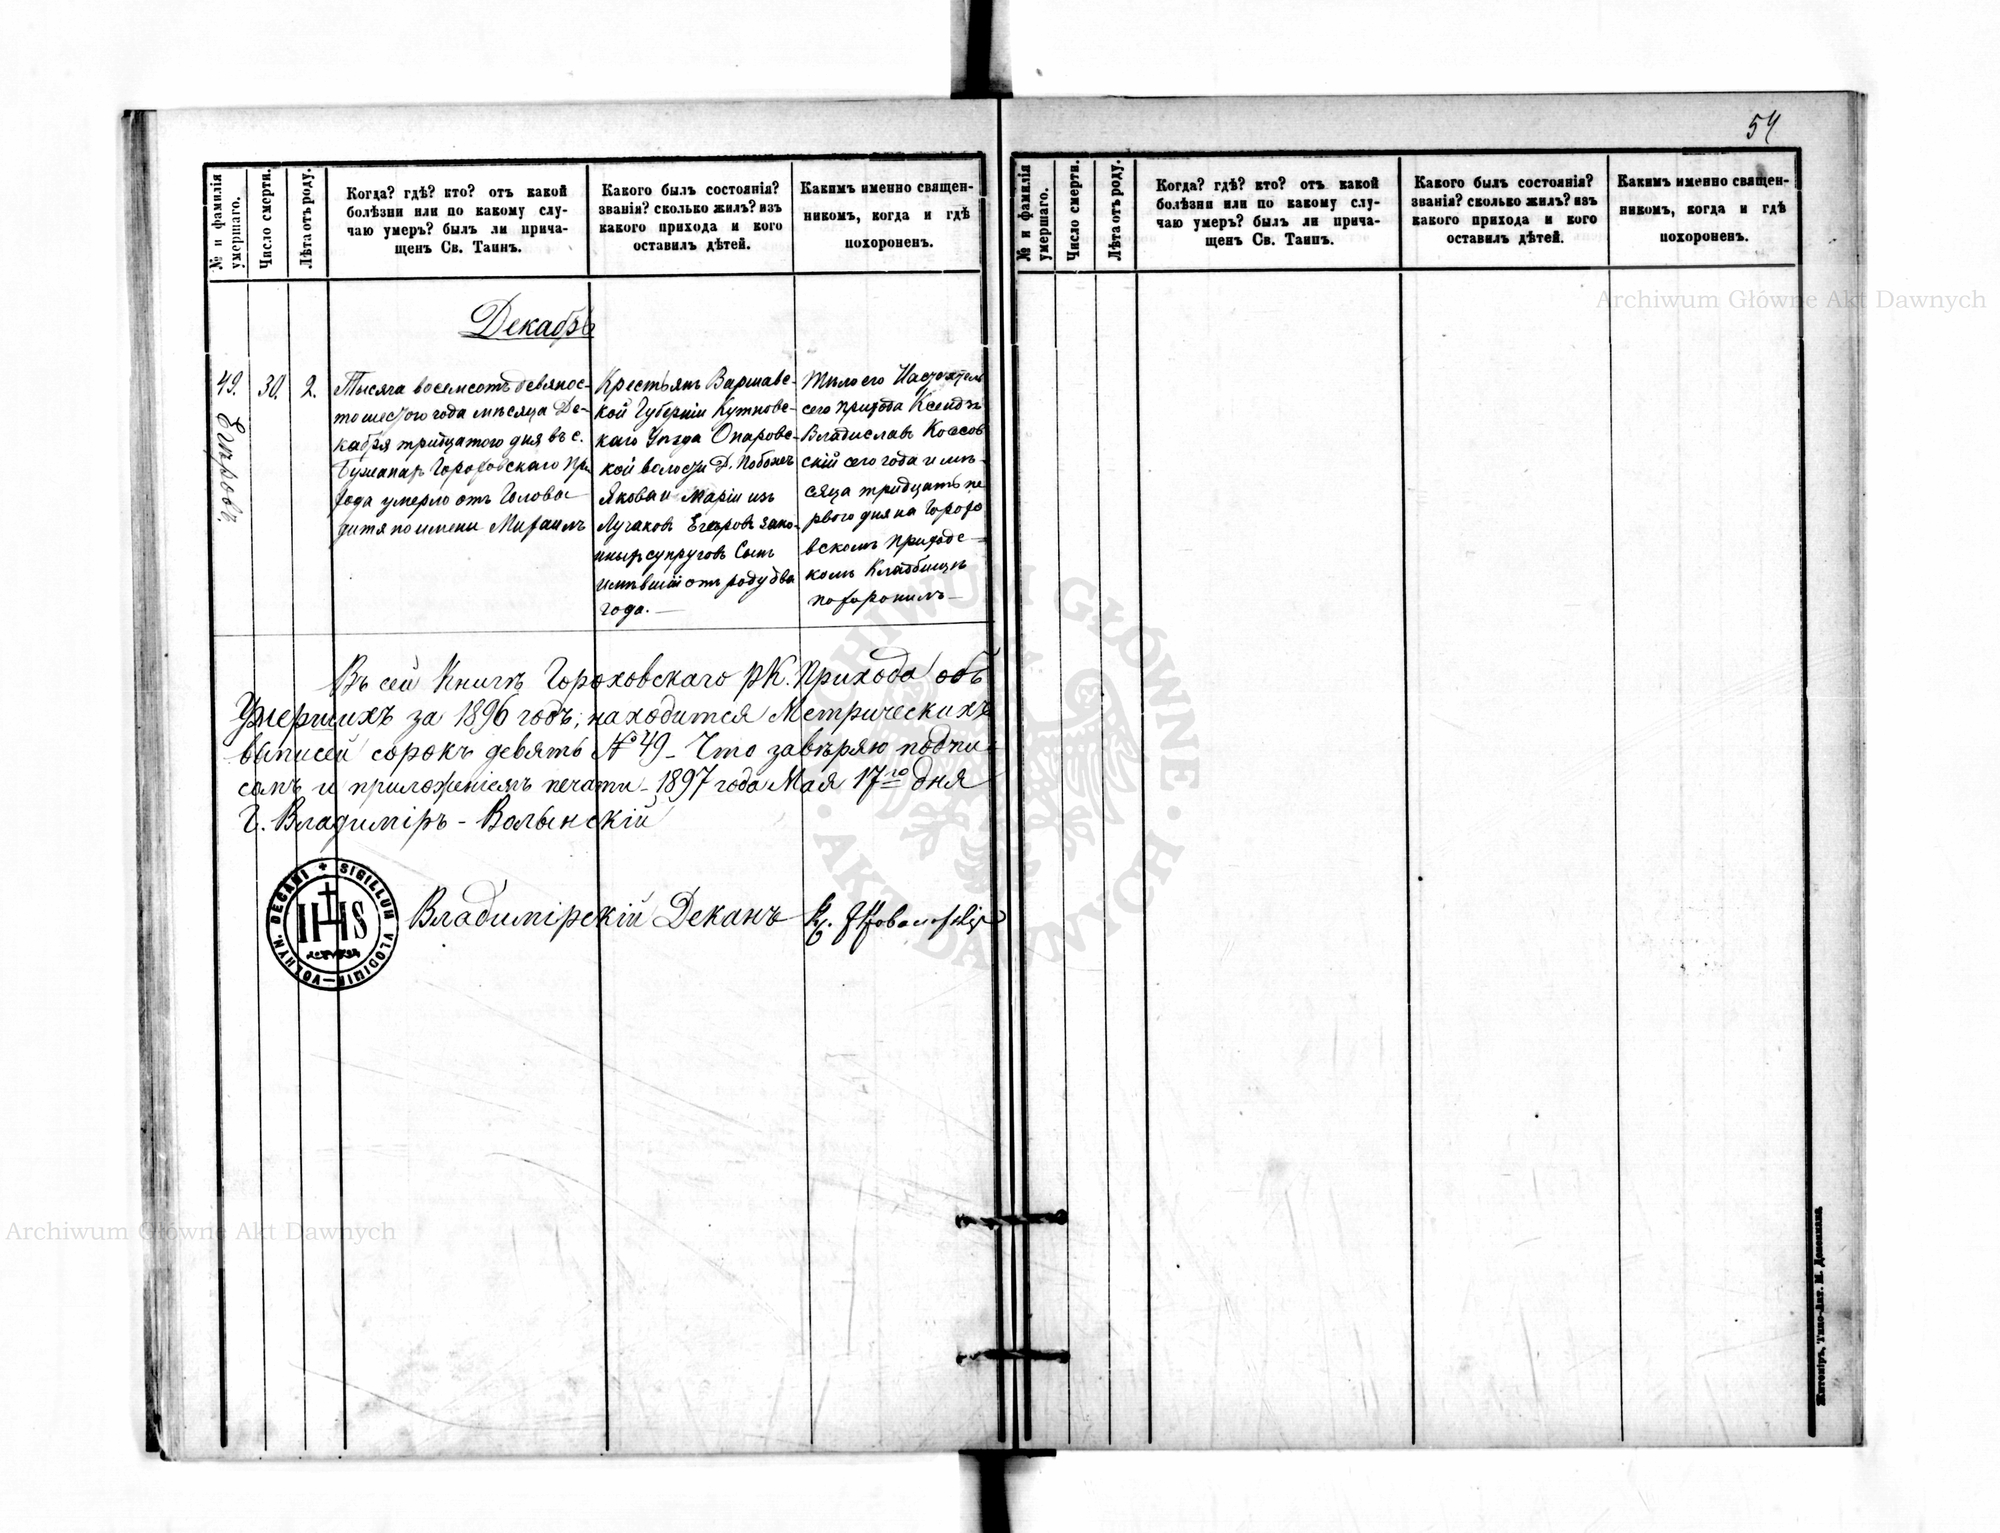 54
№ и фамилія умершаго.
Число смерти.
Лѣта отъ роду.
Когда? гдѣ? кто? отъ какой
болѣзни или по какому слу-
чаю умеръ? былъ ли прича-
щенъ Св. Таинъ.
Какого былъ состоянія?
званія? сколько жилъ? изъ
какого прихода и кого
оставилъ дѣтей.
Какимъ именно священ-
никомъ, когда и гдѣ
похороненъ.
№ и фамилія умершаго.
Число смерти.
Лѣта отъ роду.
Когда? гдѣ? кто? отъ какой
болѣзни или по какому слу-
чаю умеръ? былъ ли прича-
щенъ Св. Таинъ.
Какого былъ состоянія?
званія? сколько жилъ? изъ
какого прихода и кого
оставилъ дѣтей.
Какимъ именно священ-
никомъ, когда и гдѣ
похороненъ.
Декабрь
49.
30.
2.
Тысяча восемсотъ девянос-
то шестого года мѣсяца Де-
кабря тридцатого дня въ с.
Гороховскаго При
хода умерло отъ
дитя по имени
Крестьянъ Варшавс-
кой Губерніи Кутновс-
каго Уѣзда Опаровс-
кой волости Д.
Якова и Маріи изъ
зако-
нныхъ супруговъ Сынъ
имѣвшій отъ роду два
года.
Тѣло его Настоятель
сего прихода Ксендзъ
Владиславъ Коссов
скій сего года и мѣ-
сяца тридцать пе
рвого дня на Горохо
вскомъ приходс-
комъ Кладбищѣ
похоронилъ
Въ сей Книгѣ Гороховскаго РК. Прихода объ
Умершихъ за 1896 годъ, находится Метрическихъ
выписей сорокъ девять № 49 - Что завѣряю подпи-
сомъ и приложеніемъ печати - 1897 года Мая 17го дня
Г. Владиміръ - Волынскій
SIGILLUM VLODIMIR-VOLHYN. DECANI
IHS
Владимірскій Деканъ
Archiwum Główne Akt Dawnych
Archiwum Główne Akt Dawnych
ARCHIWUM GŁÓWNE · AKT DAWNYCH ·
Житоміръ, Типо-Лит. М. Дененмана.